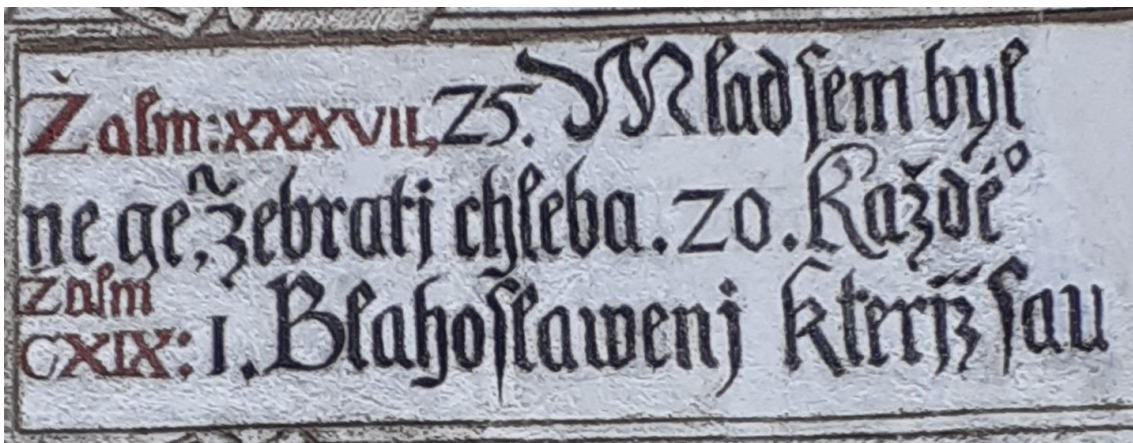 Žalm: XXXVII, 25. Mlad sem byl
ne ge~, žebrati chleba. 20. Každé°
Zalm
CXIX: 1. Blahoslaweni kteriž sau